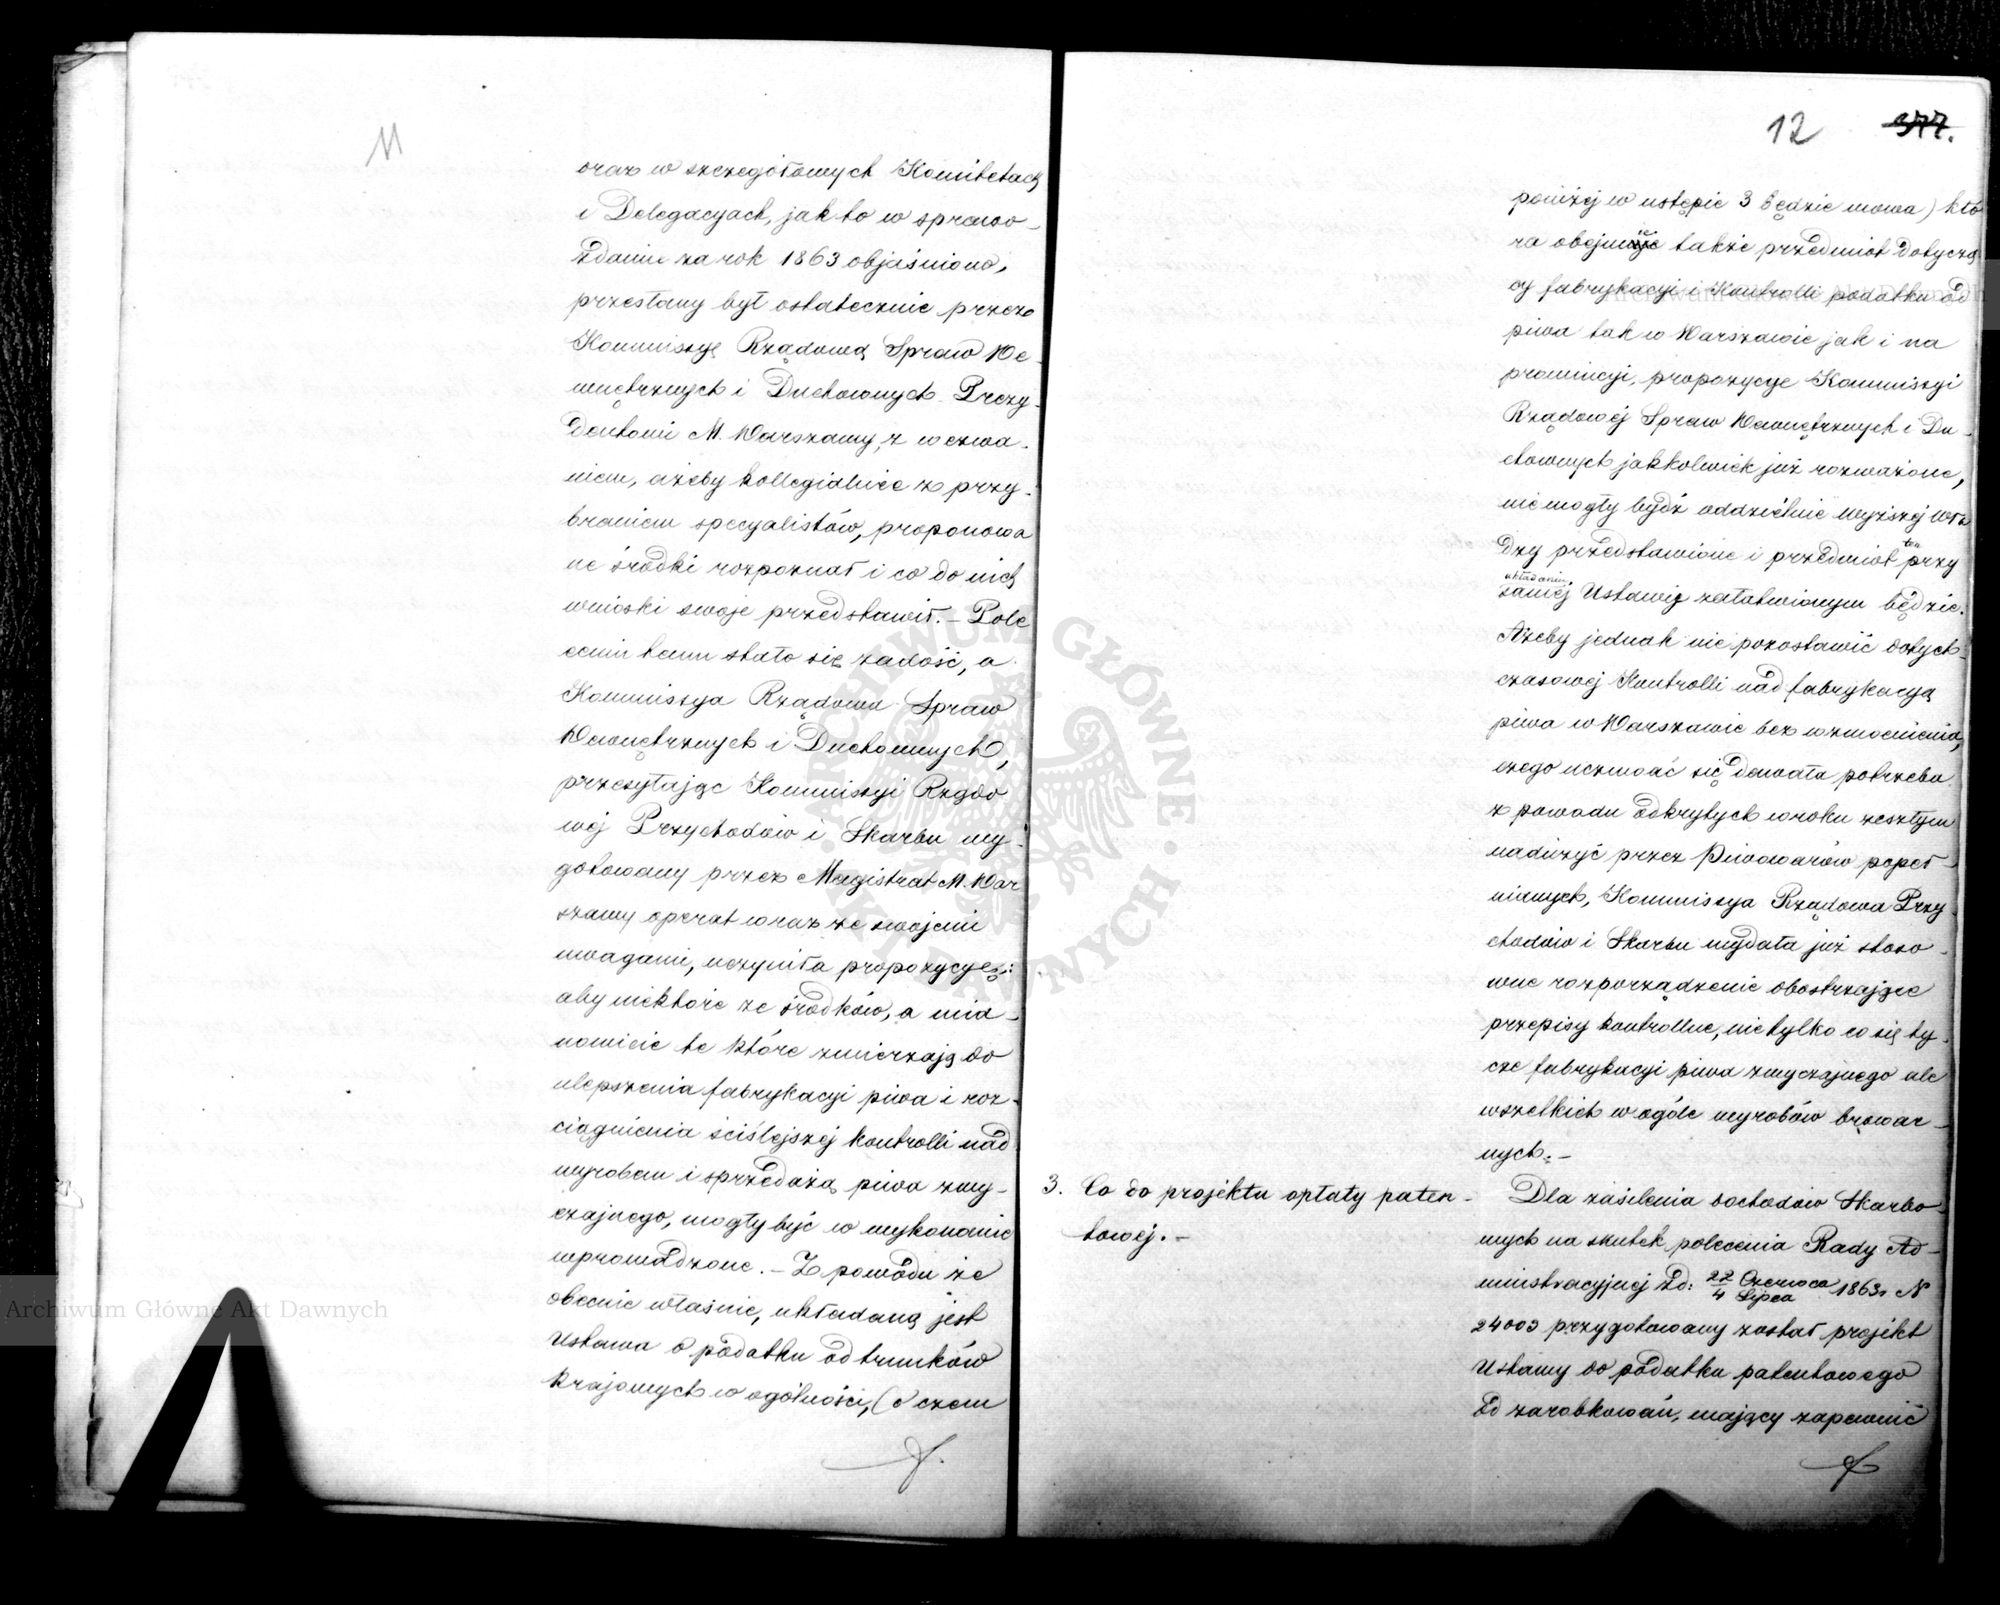 11
oraz w szczegółowych Komitetach
i Delegacyach, jak to w sprawo-
zdaniu za rok 1863 objaśniono,
przesłany był ostatecznie przez
Kommissyę Rządową Spraw We-
wnętrznych i Duchownych Prezy-
dentowi M. Warszawy, z wezwa-
niem, ażeby kollegialnie z przy-
braniem specyalistów, proponowa
ne środki rozpoznał i co do nich
wnioski swoje przedstawił. – Pole
ceniu temu stało się zadość, a
Kommissya Rządowa Spraw
Wewnętrznych i Duchownych,
przesyłając Kommissyi Rządo
wej Przychodów i Skarbu wy-
gotowany przez Magistrat M. War
szawy operat wraz ze swojemi
uwagami, uczyniła propozycye:
aby niektóre ze środków, a mia-
nowicie te które zmierzają do
ulepszenia fabrykacyi piwa i roz-
ciągnienia ściślejszej kontrolli nad
wyrobem i sprzedażą piwa zwy-
czajnego, mogły być w wykonanie
wprowadzone. – Z powodu że
obecnie właśnie, układaną jest
Ustawa o podatku od trunków
krajowych w ogólności, (o czem
12 377.
poniżej w ustępie 3 będzie mowa) któ
ra obejmie także przedmiot dotyczą
cy fabrykacyi i Kontrolli podatku od
piwa tak w Warszawie jak i na
prowincyi, propozycye Kommissyi
Rządowej Spraw Wewnętrznych i Du-
chownych jakkolwiek już rozważone,
nie mogły bydź oddzielnie wyższej Wła
dzy przedstawione i przedmiot ten przy
układaniu samej Ustawy załatwionym będzie.
Ażeby jednak nie pozostawić dotych-
czasowej Kontrolli nad fabrykacyą
piwa w Warszawie bez wzmocnienia,
czego uczuwać się dawała potrzeba
z powodu odkrytych w roku zeszłym
nadużyć przez Piwowarów popeł-
nianych, Kommissya Rządowa Przy-
chodów i Skarbu wydała już stoso-
wne rozporządzenie obostrzające
przepisy kontrollne, nietylko co się ty-
cze fabrykacyi piwa zwyczajnego ale
wszelkich w ogóle wyrobów browar-
nych. –
3. Co do projektu opłaty paten-
towej. –
Dla zasilenia dochodów Skarbo-
wych na skutek polecenia Rady Ad-
ministracyjnej zd: 22 Czerwca / 4 Lipca 1863. N
24003 przygotowany został projekt
Ustawy do podatku patentowego
od zarobkowań, mający zapewnić
ARCHIWUM GŁÓWNE AKT DAWNYCH
Archiwum Główne Akt Dawnych